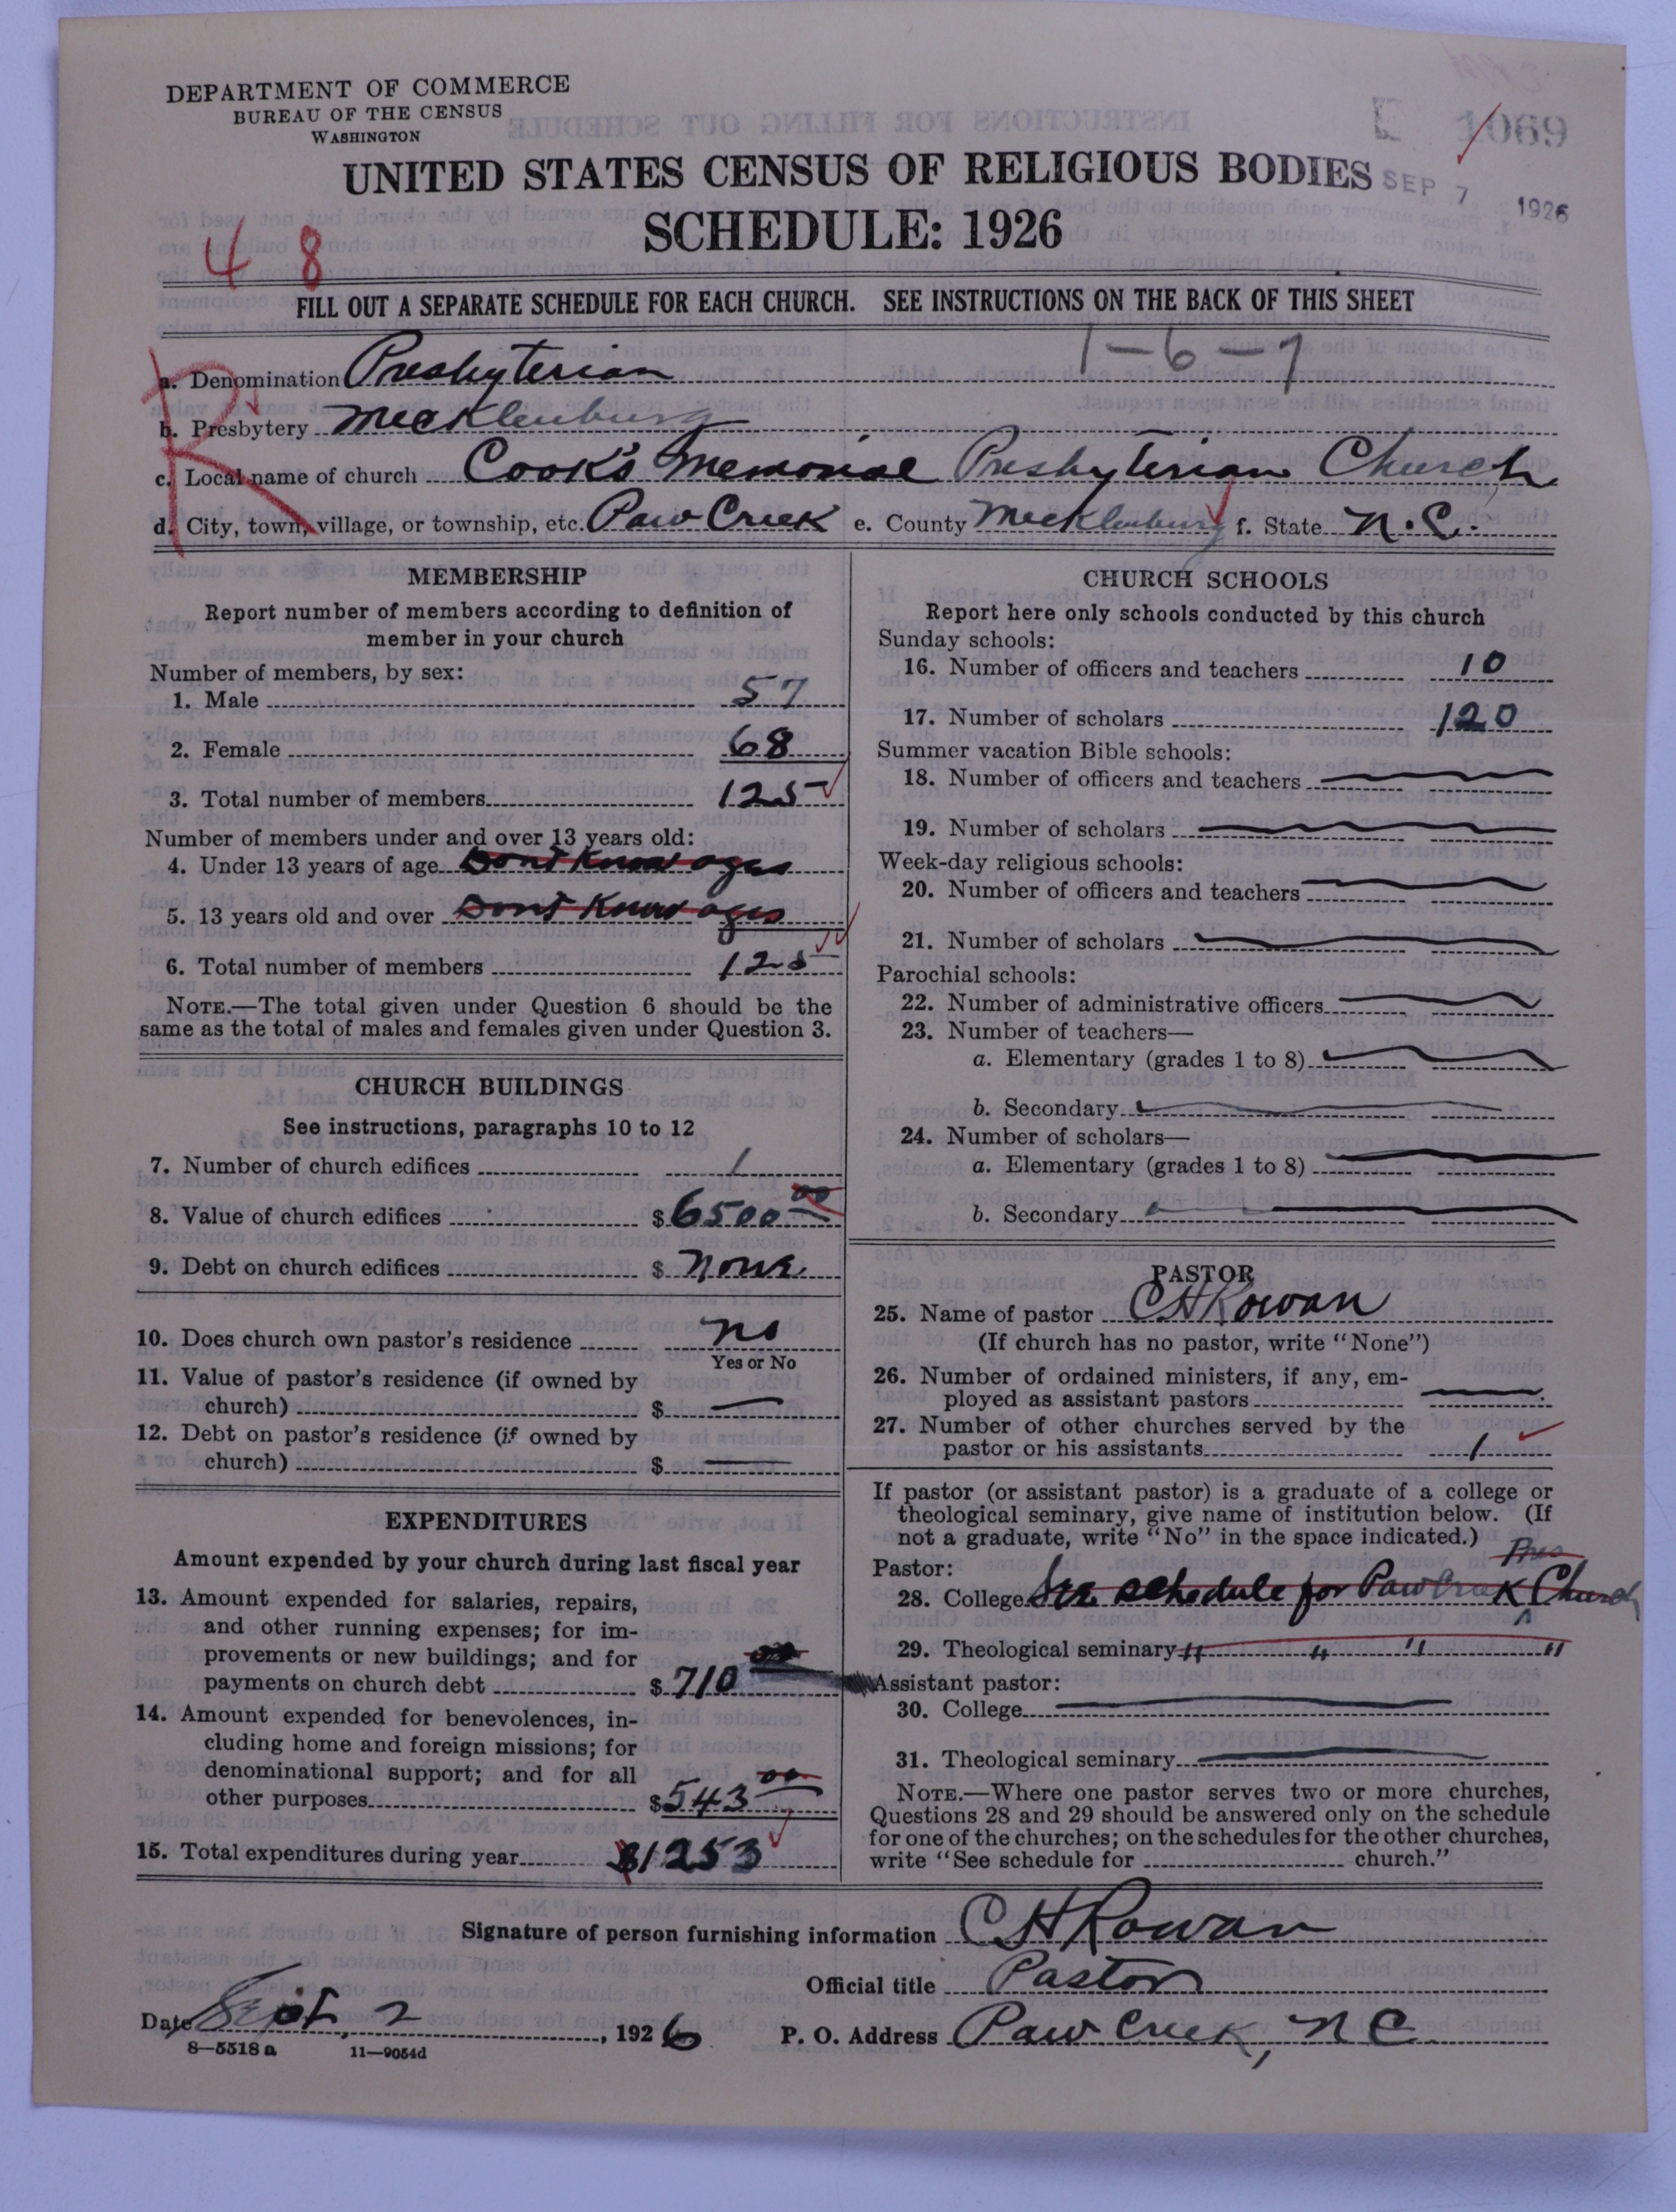 DEPARTMENT OF COMMERCE
BUREAU OF THE CENSUS
WASHINGTON
1069
UNITED STATES CENSUS OF RELIGIOUS BODIES
SEP 7 1926
SCHEDULE: 1926
4 8
FILL OUT A SEPARATE SCHEDULE FOR EACH CHURCH. SEE INSTRUCTIONS ON THE BACK OF THIS SHEET
1-6-7
R
a. Denomination Presbyterian
b. Presbytery Mecklenburg
c. Local name of church Cook's Memorial Presbyterian Church
d. City, town, village, or township, etc. Paw Creek e. County Mecklenburg f. State N.C.
MEMBERSHIP
Report number of members according to definition of
member in your church
Number of members, by sex:
1. Male 57
2. Female 68
3. Total number of members 125
Number of members under and over 13 years old:
4. Under 13 years of age Dont Know ages
5. 13 years old and over Dont Know ages
6. Total number of members 125
NOTE.—The total given under Question 6 should be the
same as the total of males and females given under Question 3.
CHURCH BUILDINGS
See instructions, paragraphs 10 to 12
7. Number of church edifices 1
8. Value of church edifices $ 6500 00
9. Debt on church edifices $ None
10. Does church own pastor's residence No
Yes or No
11. Value of pastor's residence (if owned by
church) $ —
12. Debt on pastor's residence (if owned by
church) $ —
EXPENDITURES
Amount expended by your church during last fiscal year
13. Amount expended for salaries, repairs,
and other running expenses; for im-
provements or new buildings; and for
payments on church debt $ 710 00
14. Amount expended for benevolences, in-
cluding home and foreign missions; for
denominational support; and for all
other purposes $ 543 00
15. Total expenditures during year $1253
CHURCH SCHOOLS
Report here only schools conducted by this church
Sunday schools:
16. Number of officers and teachers 10
17. Number of scholars 120
Summer vacation Bible schools:
18. Number of officers and teachers
19. Number of scholars
Week-day religious schools:
20. Number of officers and teachers
21. Number of scholars
Parochial schools:
22. Number of administrative officers
23. Number of teachers—
a. Elementary (grades 1 to 8)
b. Secondary
24. Number of scholars—
a. Elementary (grades 1 to 8)
b. Secondary
PASTOR
25. Name of pastor C H Rowan
(If church has no pastor, write "None")
26. Number of ordained ministers, if any, em-
ployed as assistant pastors
27. Number of other churches served by the
pastor or his assistants 1
If pastor (or assistant pastor) is a graduate of a college or
theological seminary, give name of institution below. (If
not a graduate, write "No" in the space indicated.)
Pastor: Pres
28. College See schedule for Paw Creek Church
29. Theological seminary " " " "
Assistant pastor:
30. College
31. Theological seminary
NOTE.—Where one pastor serves two or more churches,
Questions 28 and 29 should be answered only on the schedule
for one of the churches; on the schedules for the other churches,
write "See schedule for church."
Signature of person furnishing information C H Rowan
Official title Pastor
Date Sept. 2, 1926 P. O. Address Paw Creek, N C
8—5518a 11—9054d